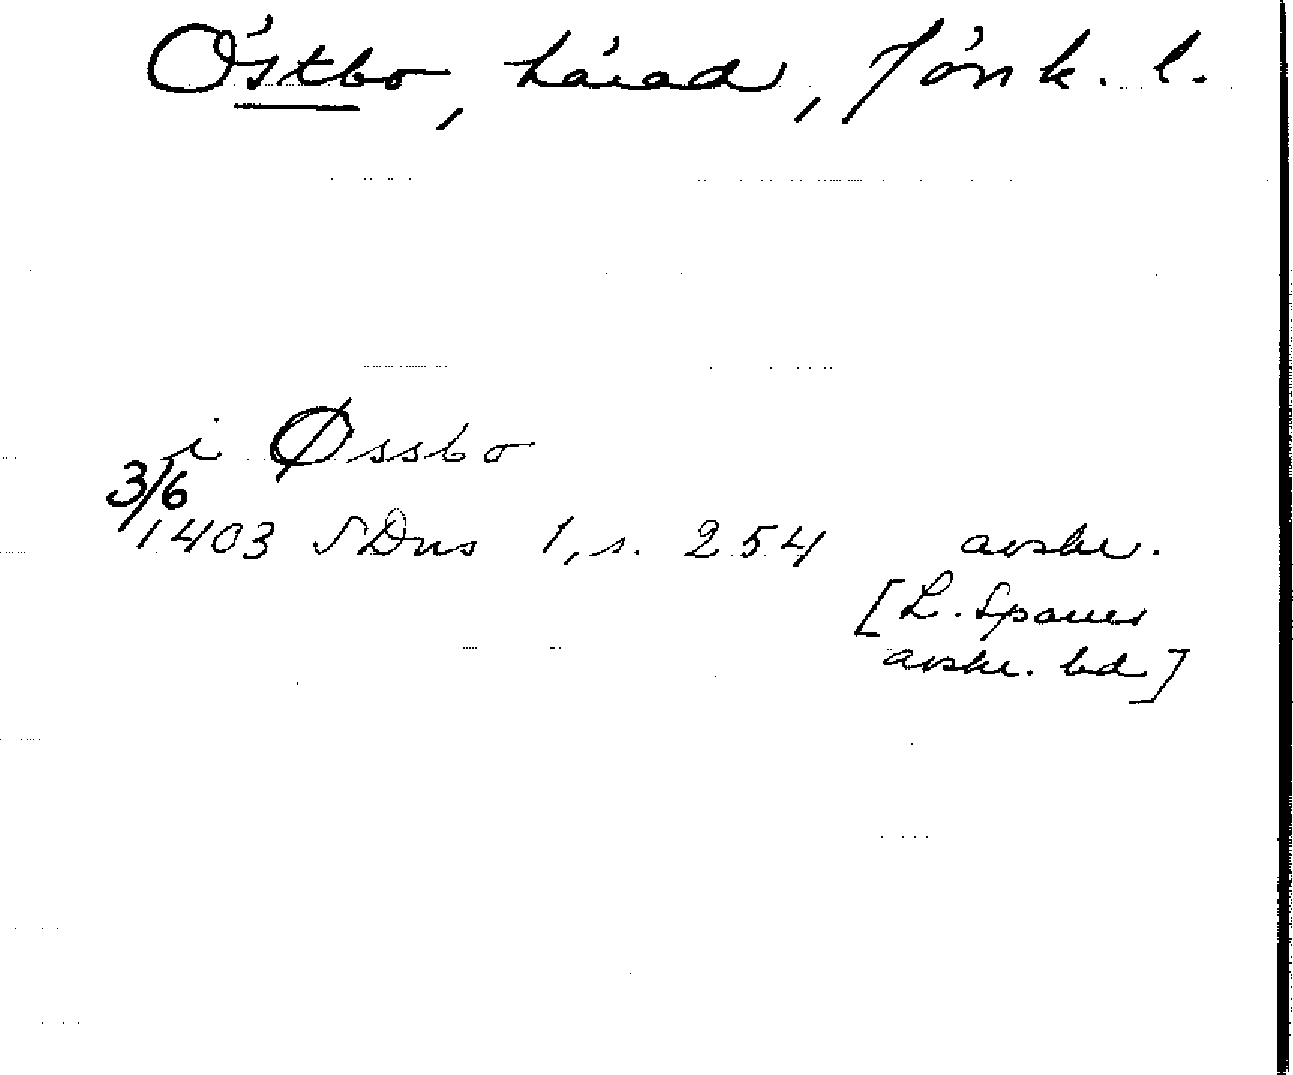 Östbo, härad, Jönk. l.
i Øssbo
3/6
1403 SDns 1, s. 254 avskr.
[L. Sparres
avskr. bd]